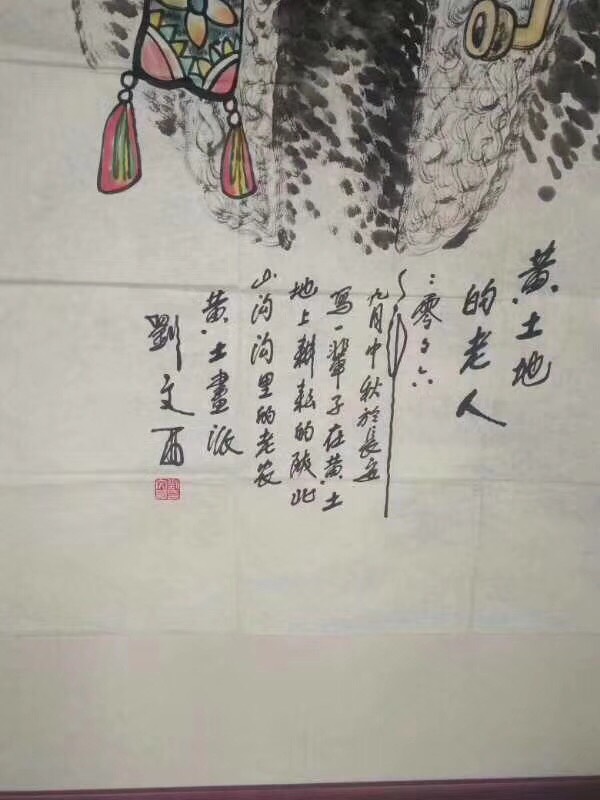 黄土地
的老人
二零零六年
九月中秋於長安
写一輩子在黄土
地上耕耘的陕北
山沟沟里的老农
黄土畫派
劉文西